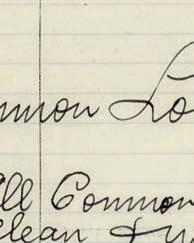 mmon Lo
ll Common
lean